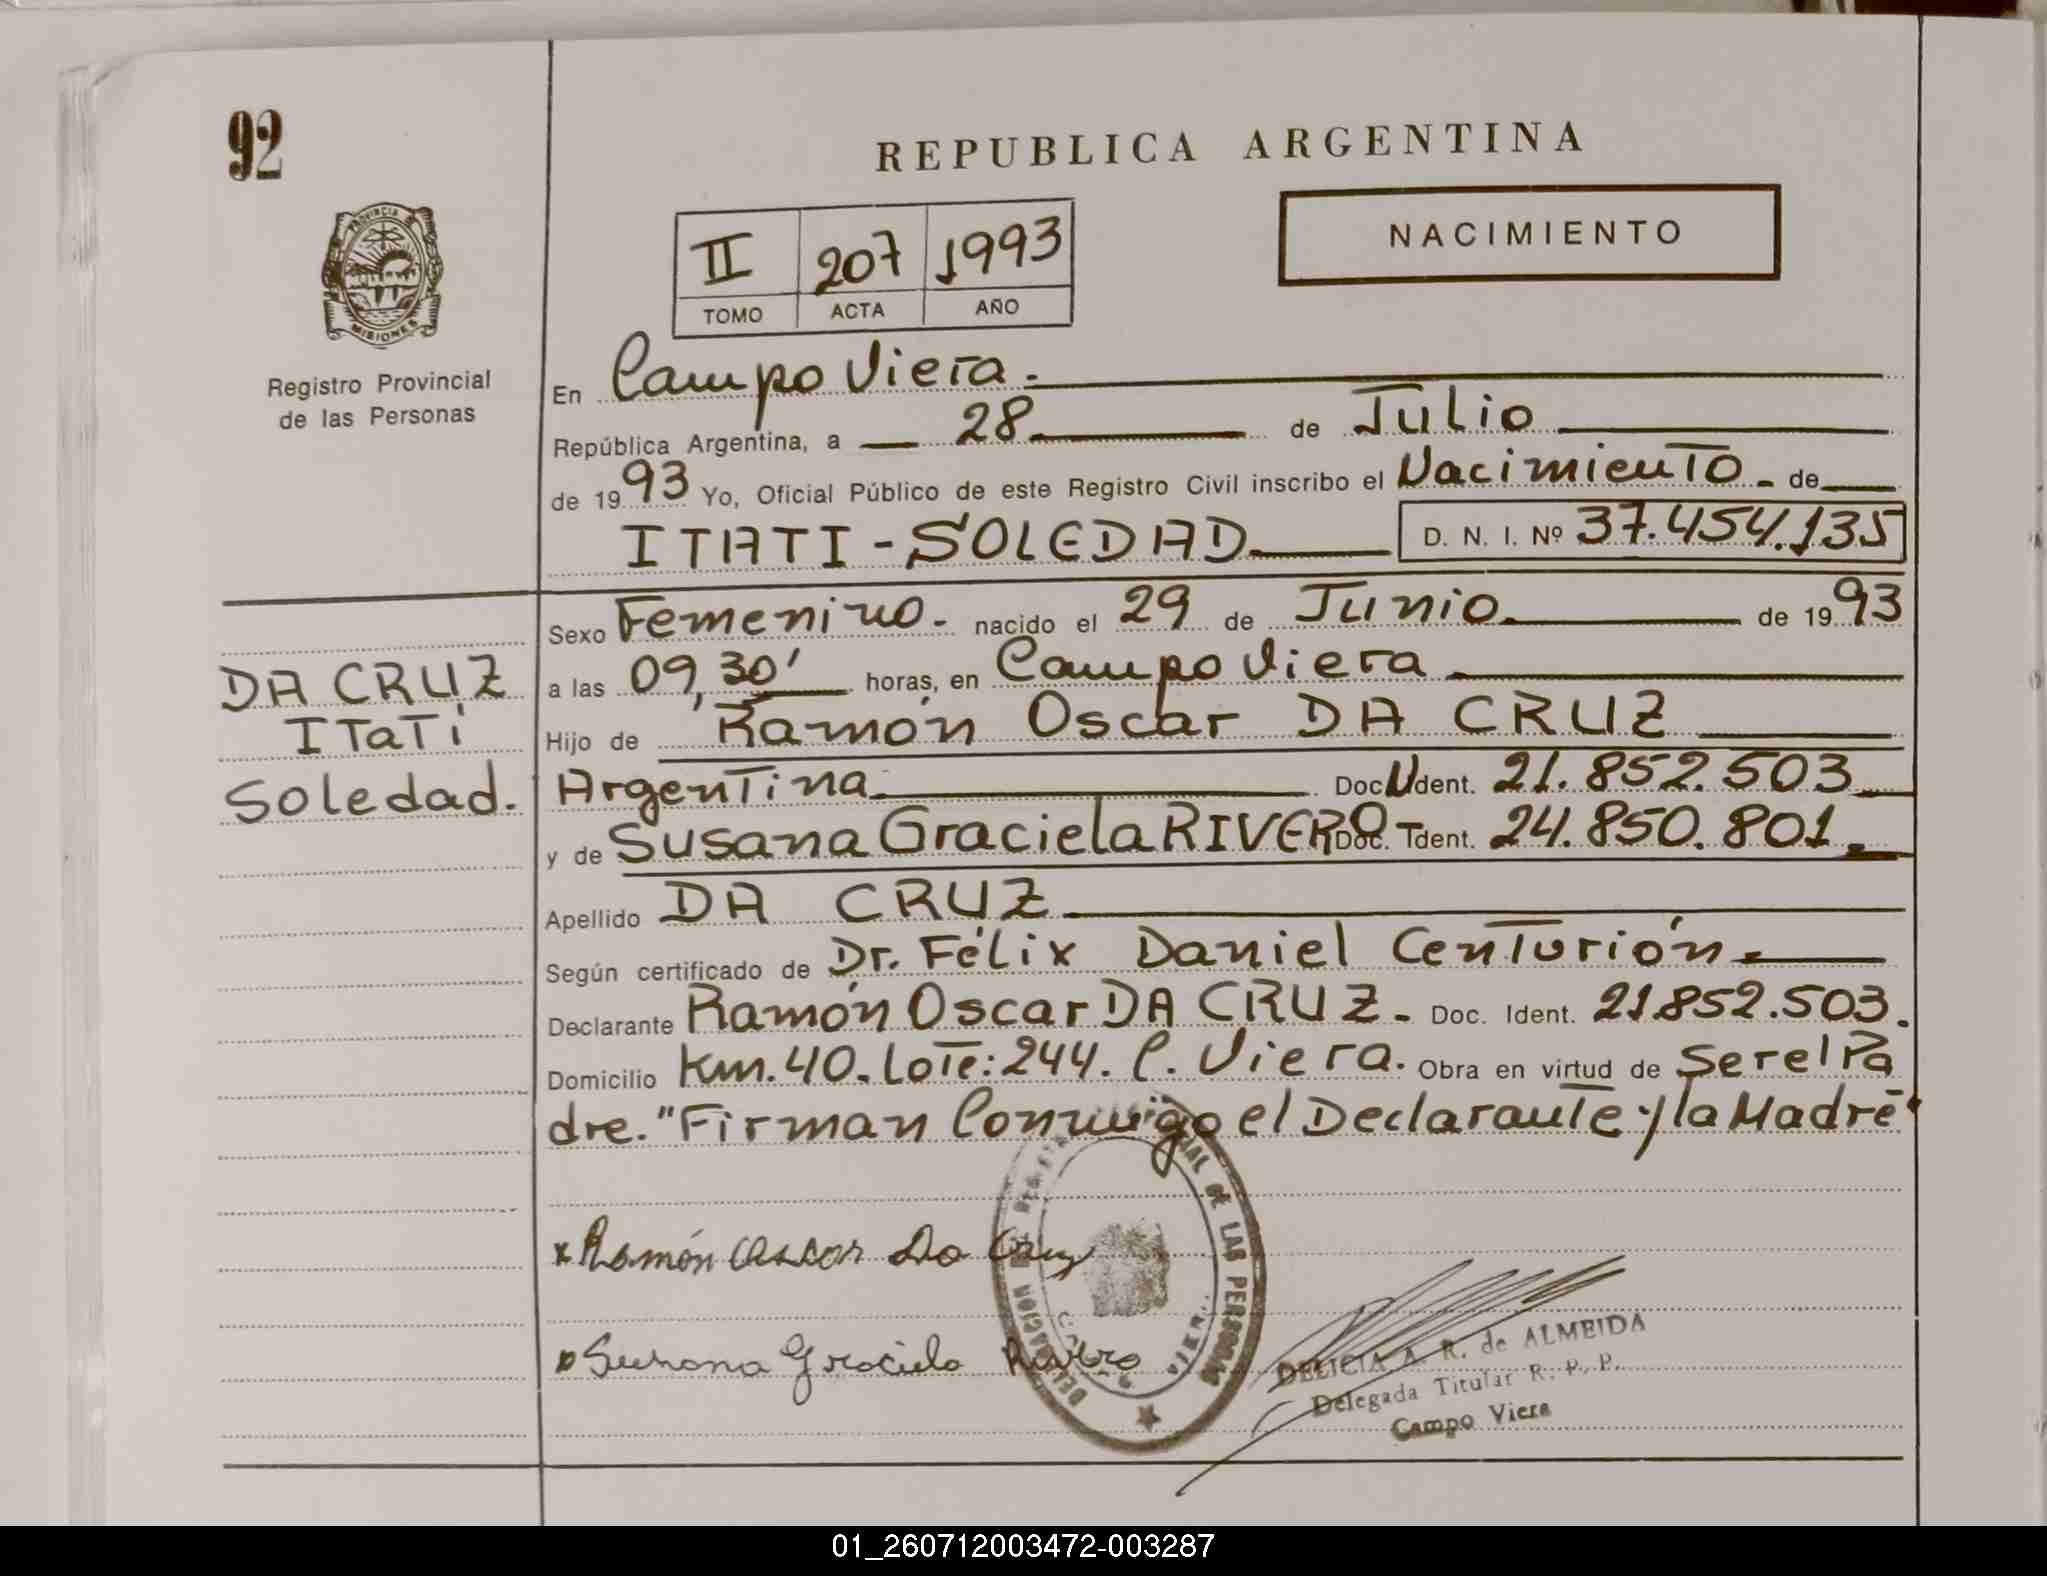 92
REPUBLICA ARGENTINA
PROVINCIA DE
MISIONES
Registro Provincial
de las Personas
II 207 1993
TOMO ACTA AÑO
NACIMIENTO
En Campo Viera.
República Argentina, a 28 de Julio
de 1993 Yo, Oficial Público de este Registro Civil inscribo el Nacimiento - de
ITATI - SOLEDAD D. N. I. Nº 37.454.135
Sexo Femenino. nacido el 29 de Junio de 1993
a las 09,30' horas, en Campo Viera
Hijo de Ramón Oscar DA CRUZ
Argentina Doc. Ident. 21.852.503
y de Susana Graciela RIVERO Doc. Ident. 24.850.801.
Apellido DA CRUZ
Según certificado de Dr. Félix Daniel Centurión.
Declarante Ramón Oscar DA CRUZ. Doc. Ident. 21.852.503.
Domicilio Km. 40. Lote: 244. C. Viera. Obra en virtud de Ser el Pa
dre. "Firman Conmigo el Declarante y la Madre"
DA CRUZ
ITaTí
Soledad.
x Ramón Oscar Da Cruz
x Susana Graciela Rivero
DE LAS PERSONAS
DELICIA A. R. de ALMEIDA
Delegada Titular R. P. P.
Campo Viera
01_260712003472-003287